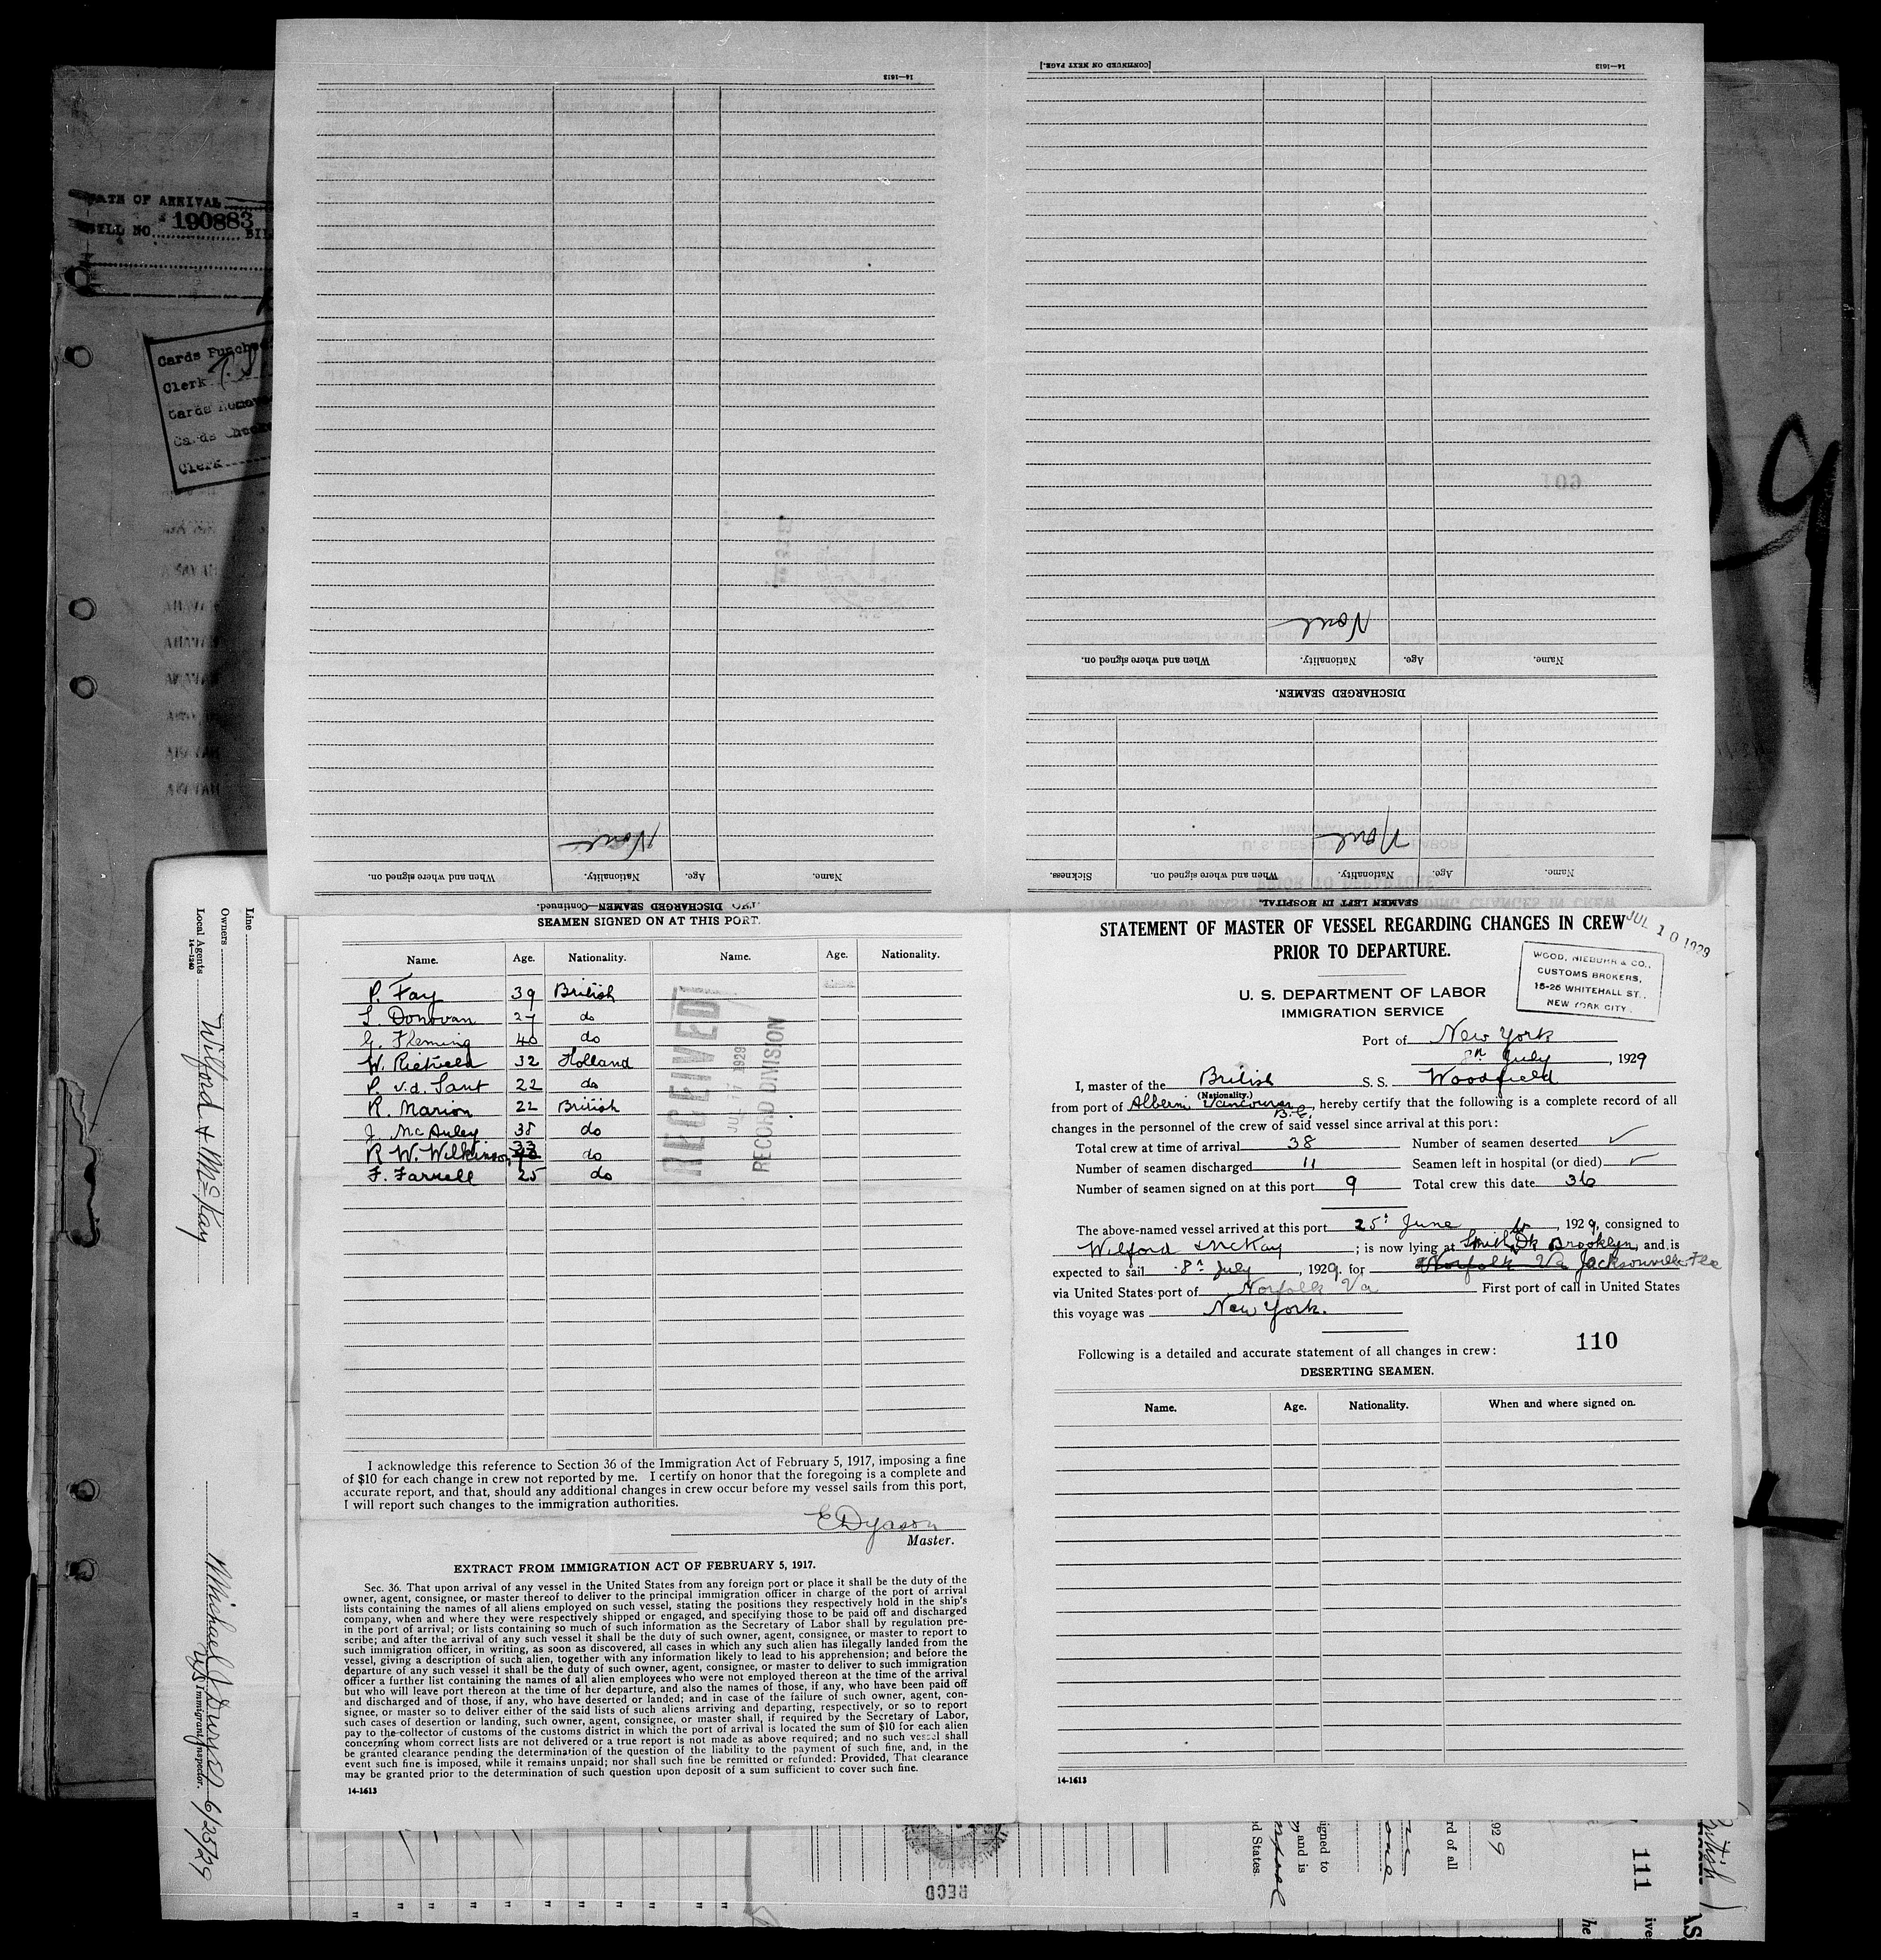 14—1613
[CONTINUED ON NEXT PAGE.]
14—1613
DATE OF ARRIVAL
BILL NO. 190883
Cards Punched
Clerk
Cards Remov
Cards Checke
Clerk
None
When and where signed on.
Nationality.
Age.
Name.
DISCHARGED SEAMEN.
None
None
Name.
Age.
Nationality.
When and where signed on.
Sickness.
Name.
Age.
Nationality.
When and where signed on.
DISCHARGED SEAMEN—Continued.
SEAMEN LEFT IN HOSPITAL.
SEAMEN SIGNED ON AT THIS PORT.
Name. Age. Nationality. Name. Age. Nationality.
P. Fay 39 British
Donovan 27 do
G. Fleming 40 do
W. Rietveld 32 Holland
P. v.d. Sant 22 do
R. Marion 22 British
J. McAuley 38 do
R W. Wilkinson 33 do
F. Farrell 25 do
RECEIVED
JUL 17 1929
RECORD DIVISION
I acknowledge this reference to Section 36 of the Immigration Act of February 5, 1917, imposing a fine
of $10 for each change in crew not reported by me. I certify on honor that the foregoing is a complete and
accurate report, and that, should any additional changes in crew occur before my vessel sails from this port,
I will report such changes to the immigration authorities.
E Dyason
Master.
EXTRACT FROM IMMIGRATION ACT OF FEBRUARY 5, 1917.
Sec. 36. That upon arrival of any vessel in the United States from any foreign port or place it shall be the duty of the
owner, agent, consignee, or master thereof to deliver to the principal immigration officer in charge of the port of arrival
lists containing the names of all aliens employed on such vessel, stating the positions they respectively hold in the ship's
company, when and where they were respectively shipped or engaged, and specifying those to be paid off and discharged
in the port of arrival; or lists containing so much of such information as the Secretary of Labor shall by regulation pre-
scribe; and after the arrival of any such vessel it shall be the duty of such owner, agent, consignee, or master to report to
such immigration officer, in writing, as soon as discovered, all cases in which any such alien has illegally landed from the
vessel, giving a description of such alien, together with any information likely to lead to his apprehension; and before the
departure of any such vessel it shall be the duty of such owner, agent, consignee, or master to deliver to such immigration
officer a further list containing the names of all alien employees who were not employed thereon at the time of the arrival
but who will leave port thereon at the time of her departure, and also the names of those, if any, who have been paid off
and discharged and of those, if any, who have deserted or landed; and in case of the failure of such owner, agent, con-
signee, or master so to deliver either of the said lists of such aliens arriving and departing, respectively, or so to report
such cases of desertion or landing, such owner, agent, consignee, or master shall, if required by the Secretary of Labor,
pay to the collector of customs of the customs district in which the port of arrival is located the sum of $10 for each alien
concerning whom correct lists are not delivered or a true report is not made as above required; and no such vessel shall
be granted clearance pending the determination of the question of the liability to the payment of such fine, and, in the
event such fine is imposed, while it remains unpaid; nor shall such fine be remitted or refunded: Provided, That clearance
may be granted prior to the determination of such question upon deposit of a sum sufficient to cover such fine.
14-1613
STATEMENT OF MASTER OF VESSEL REGARDING CHANGES IN CREW
PRIOR TO DEPARTURE.
JUL 10 1929
WOOD, NIEBUHR & CO.,
CUSTOMS BROKERS,
18-26 WHITEHALL ST.,
NEW YORK CITY.
U. S. DEPARTMENT OF LABOR
IMMIGRATION SERVICE
Port of New York
8th July, 1929
I, master of the British S. S. Woodfield
(Nationality.)
from port of Alberni Vancouver B.C., hereby certify that the following is a complete record of all
changes in the personnel of the crew of said vessel since arrival at this port:
Total crew at time of arrival 38 Number of seamen deserted ✓
Number of seamen discharged 11 Seamen left in hospital (or died) ✓
Number of seamen signed on at this port 9 Total crew this date 36
The above-named vessel arrived at this port 25th June, 1929, consigned to
Wilford & McKay; is now lying at Smith Dk Brooklyn, and is
expected to sail 8th July, 1929. for Norfolk Va Jacksonville Fla
via United States port of Norfolk Va First port of call in United States
this voyage was New York.
110
Following is a detailed and accurate statement of all changes in crew:
DESERTING SEAMEN.
Name. Age. Nationality. When and where signed on.
14-1613
Line
Owners
Local Agents Wilford & McKay
14—1240
Immigrant Inspector.
6/25/29
RECD
d States.
and is
igned to
rd of all
929
111
British